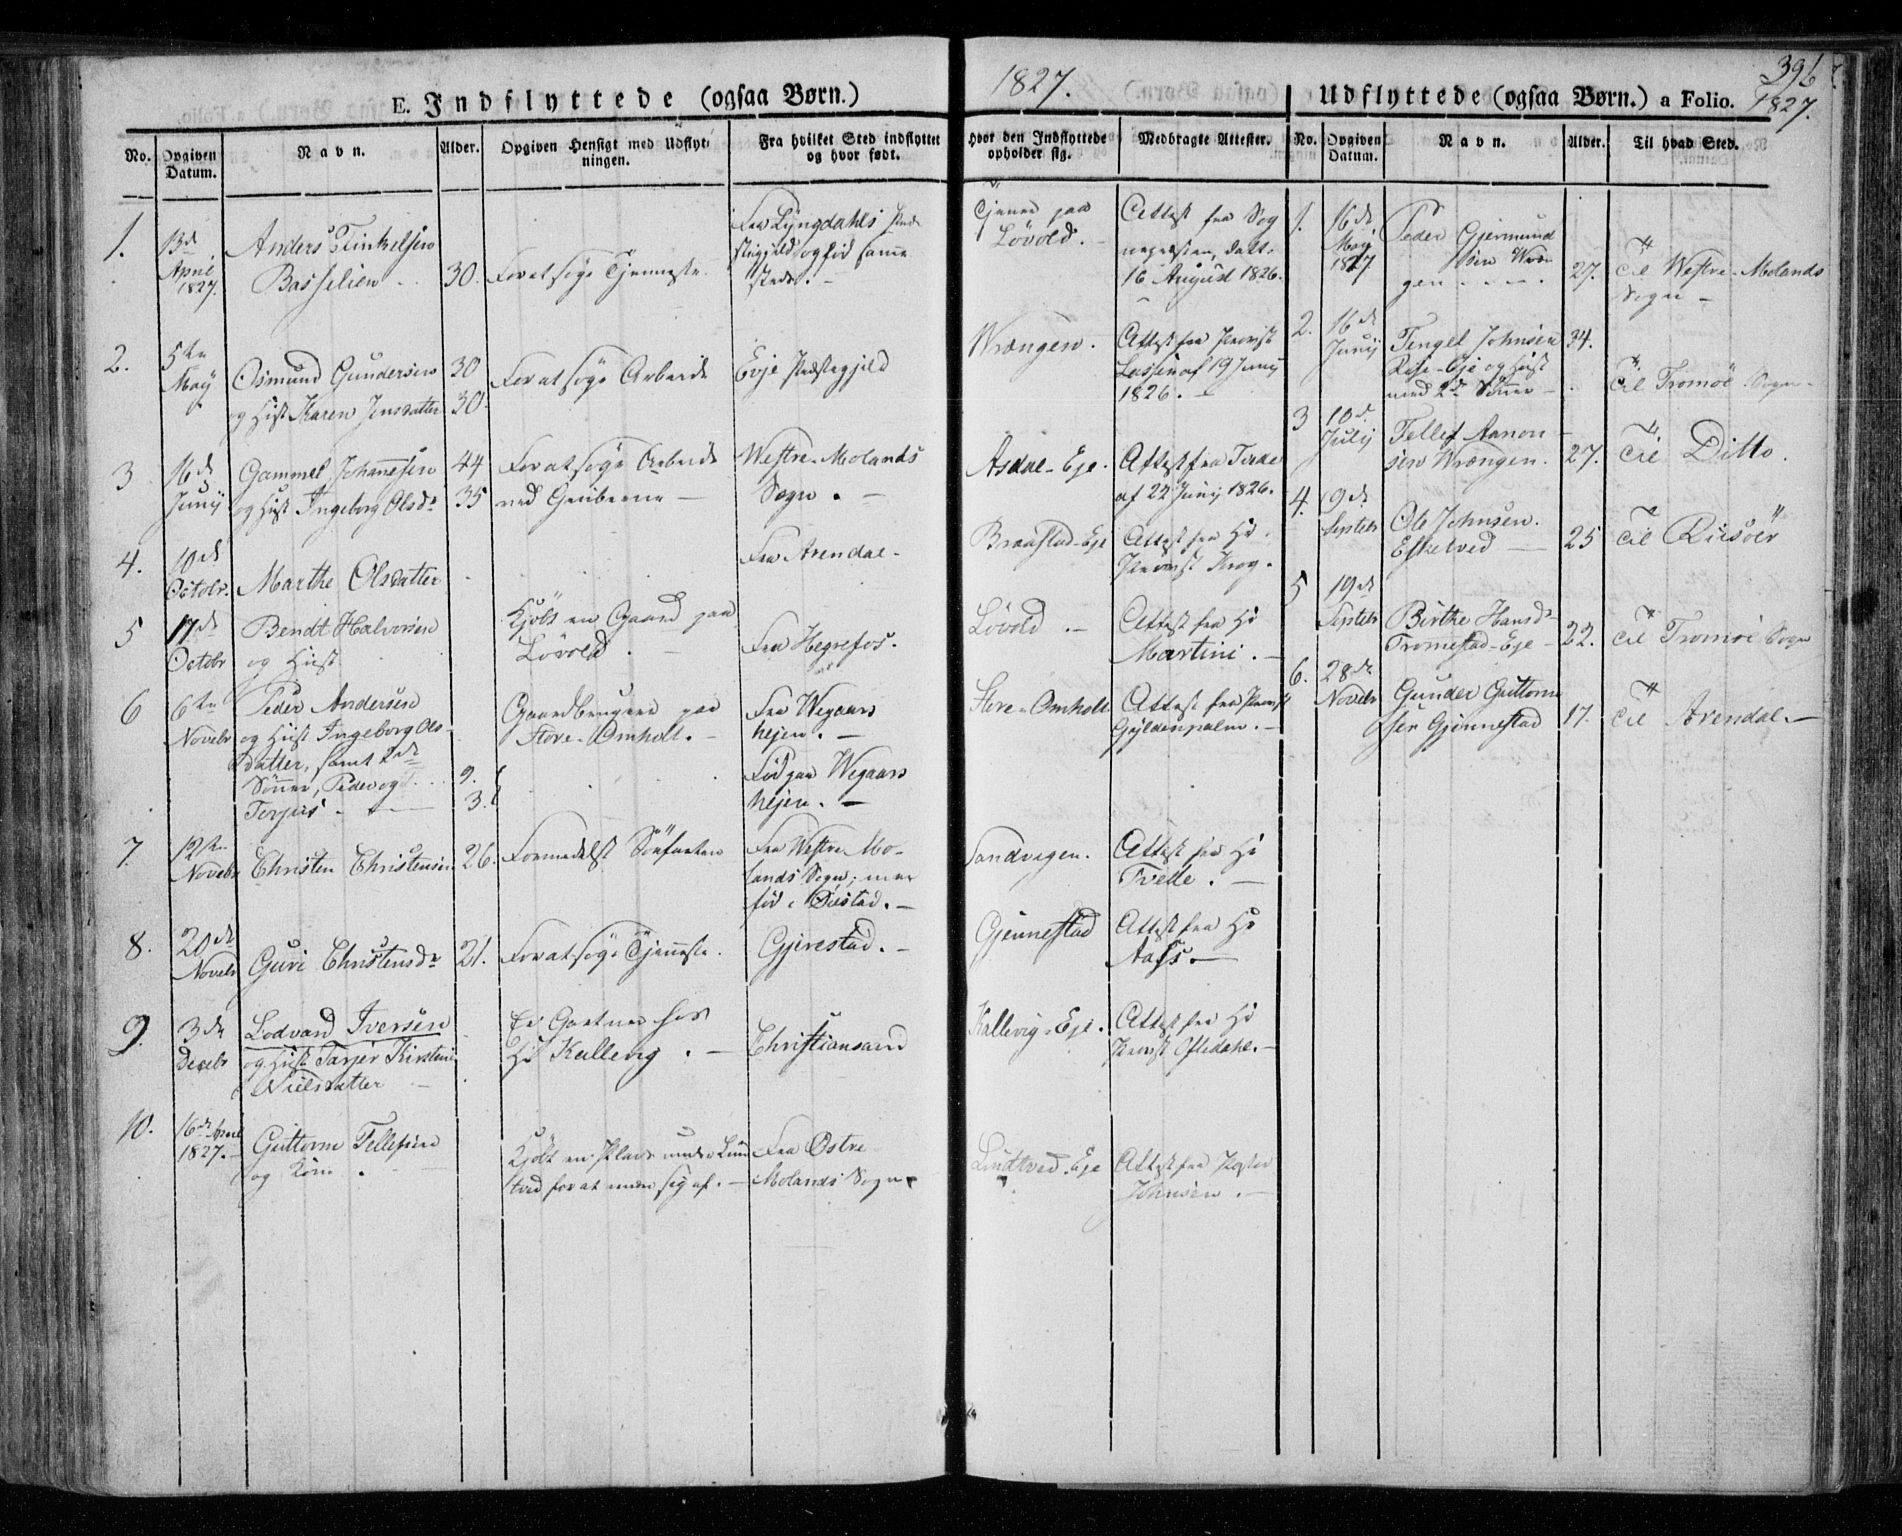 396
E. Indflyttede (ogsaa Børn.)
1827.
Udflyttede (ogsaa Børn.) a Folio.
1827.
No.
Opgiven Datum.
Navn.
Alder.
Opgiven Hensigt med Udflyt-
ningen.
Fra hvilket Sted indflyttet
og hvor født.
Hvor den Indflyttede
opholder sig.
Medbragte Attester.
No.
Opgiven Datum.
Navn.
Alder.
Til hvad Sted.
1.
13d
April
1827.
Anders
30.
For at søge Tjenneste
Fra Lyngdahls
stegjeld og fød samme
steds. -
Tjener paa
Løvold. -
Attest fra Sog
nepræsten, datt.
16 August 1826.
2.
5te
Maij
Osmund Gundersen
30
og Hust Karen Jensdatter
30.
For at søge Arbeide
Evje Præstegjeld
Wrængen.
Attest fra Provst
Lassen af 19 Junij
1826. -
3
16d
Junij
Gammel Johannesen
44
og Hust Ingeborg Olsdr
35
For at søge Arbeide
ved Gruberne -
Westre-Molands
Sogn. -
Asdal-Eje.
Attest fra
af 22 Junij 1826.
4.
10d
Octobr.
Marthe Olsdatter
Fra Arendal.
Braastad-Eje
Attest fra Hr
Provst Krog.
5
17de
Octobr
Bendt Halvorsen
og Hust.
Kjøbt en Gaard paa
Løvold. -
Fra Hegrefos.
Løvold -
Attest fra Hr
Martini. -
6
6te
Novebr
Peder Andersen
og Hust Ingeborg Ols-
datter, samt 2de
Sønner, Peder og
9.
Terjus. -
3.
Gaardbruger paa
Store-Omholt. -
Fra Wegaars
hejen. -
Fød paa Wegaars
hejen. -
Store-Omholt
Attest fra Provst
Gyldenpalm. -
7.
12te
Novebr
Christen Christensen
26.
Formedelst Søefarten
Fra Westre Mo-
lands Sogn, men
fød i Øiestad. -
Sandvigen.
Attest fra Hr
Tvede. -
8.
20de
Novebr
Guri Christensdr
21.
For at søge Tjenneste.
Gjerestad. -
Gjennestad
Attest fra Hr
Aass. -
9.
3de
Decebr
Lodvard Iversen
og Hust Tarjer Kirstine
Nielsdatter -
Er Gartner hos
Hr Kallevig. -
Christiansand
Kallevig-Eje.
Attest fra Hr
Provst Oftedahl. -
10.
16de April
1827. -
Guttorm Tellefsen
og Kone.
Kjøbt en Plads under Lind
tved for at nære sig af. -
Fra Østre
Molands Sogn.
Lindtved-Eje
Attest fra Pastor
Johnsen. -
1.
16de
Maij
1827
Peder Gjermund
sen Wræn
gen
27.
Til Westre-Molands
Sogn -
2.
16de
Junij
Tengel Johnsen
34.
-Eje og Hust
med 2de Sønner -
Til Tromøe Sogn -
3
10d.
Julij
Tellef Aanon
sen Wrængen.
27.
Til Ditto.
4.
9de
Septebr
Ole Johnsen.
Eskelved -
25
Til Riisöer
5
19de
Septebr
Birthe Hansdr
Trommestad-Eje -
22.
Til Tromøe Sogn
6.
28de
Novebr
Gunder Guttorm
sen Gjennestad
17.
Til Arendal. -